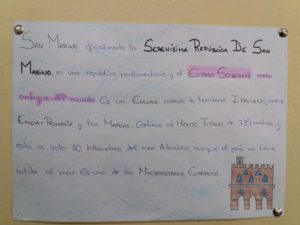 SAN MARINO oficialmente la SERENÍSIMA REPÚBLICA DE SAN
MARINO, es una república parlamentaria y el ESTADO SOBERANO más
antiguo del mundo. Es un ENCLAVE rodeado de territorio ITALIANO, entre
EMILIA-ROMAÑA y las MARCAS. Contiene al MONTE TITANO, de 739 metros, y
está a solo 10 kilómetros del mar Adriático, aunque el país no tiene
salida al mar. Es uno de los MICROESTADOS EUROPEOS.